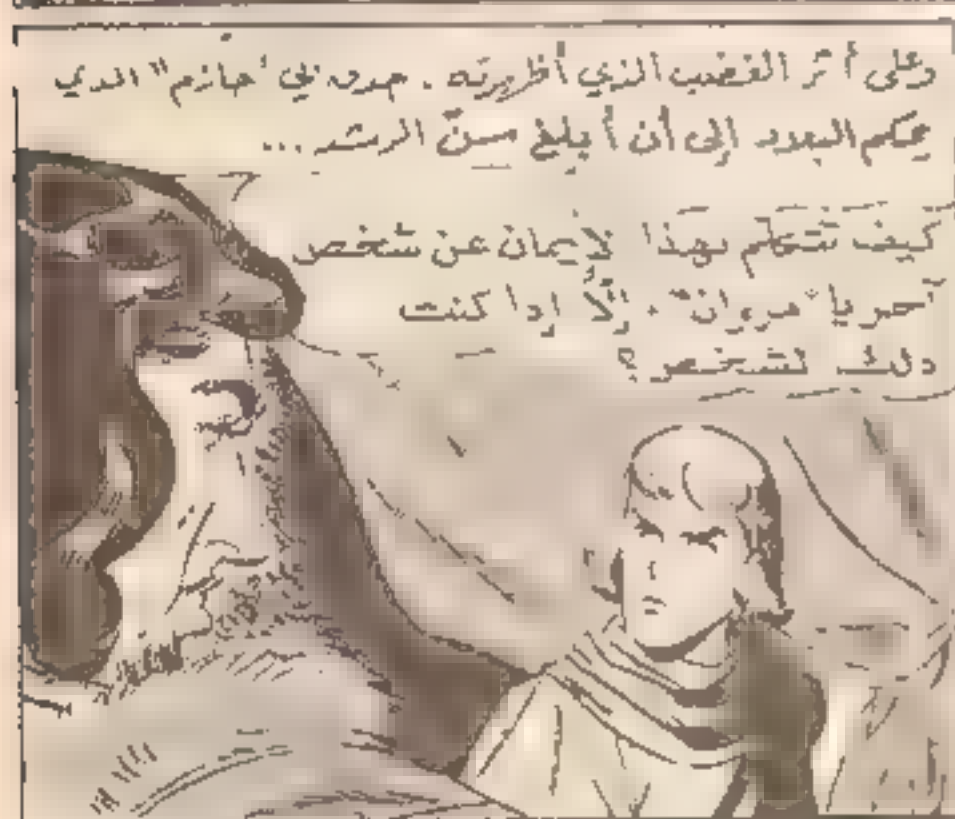 وعلى أثر الغضب الذي أظهرته . حدق بي "حازم" الذي
يحكم البلاد إلى أن أبلغ سنّ الرشد ...
كيف تتكلم بهذا الإيمان عن شخص
آخر يا "مروان" . إلّا إذا كنت
ذلك الشخص ؟